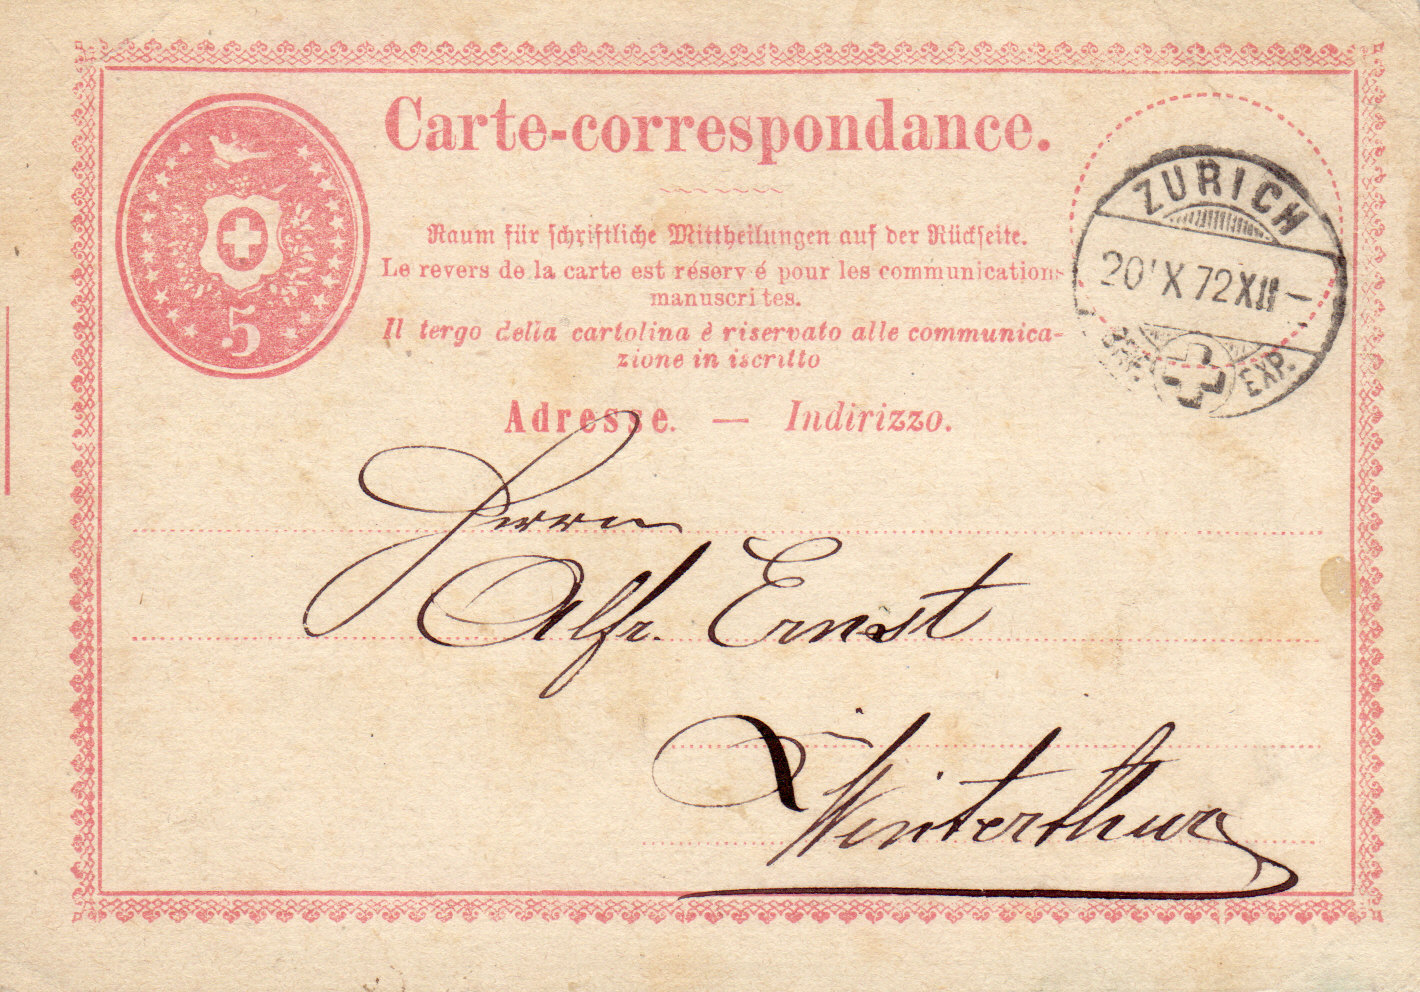 Carte-correspondance.
Raum für schriftliche Mittheilungen auf der Rückseite.
Le revers de la carte est réservé pour les communications
manuscrites.
Il tergo della cartolina è riservato alle communica-
zione in iscritto
Adresse. — Indirizzo.
5
ZÜRICH
20 X 72 XII –
EXP.
Herrn
Alfr. Ernst
Winterthur